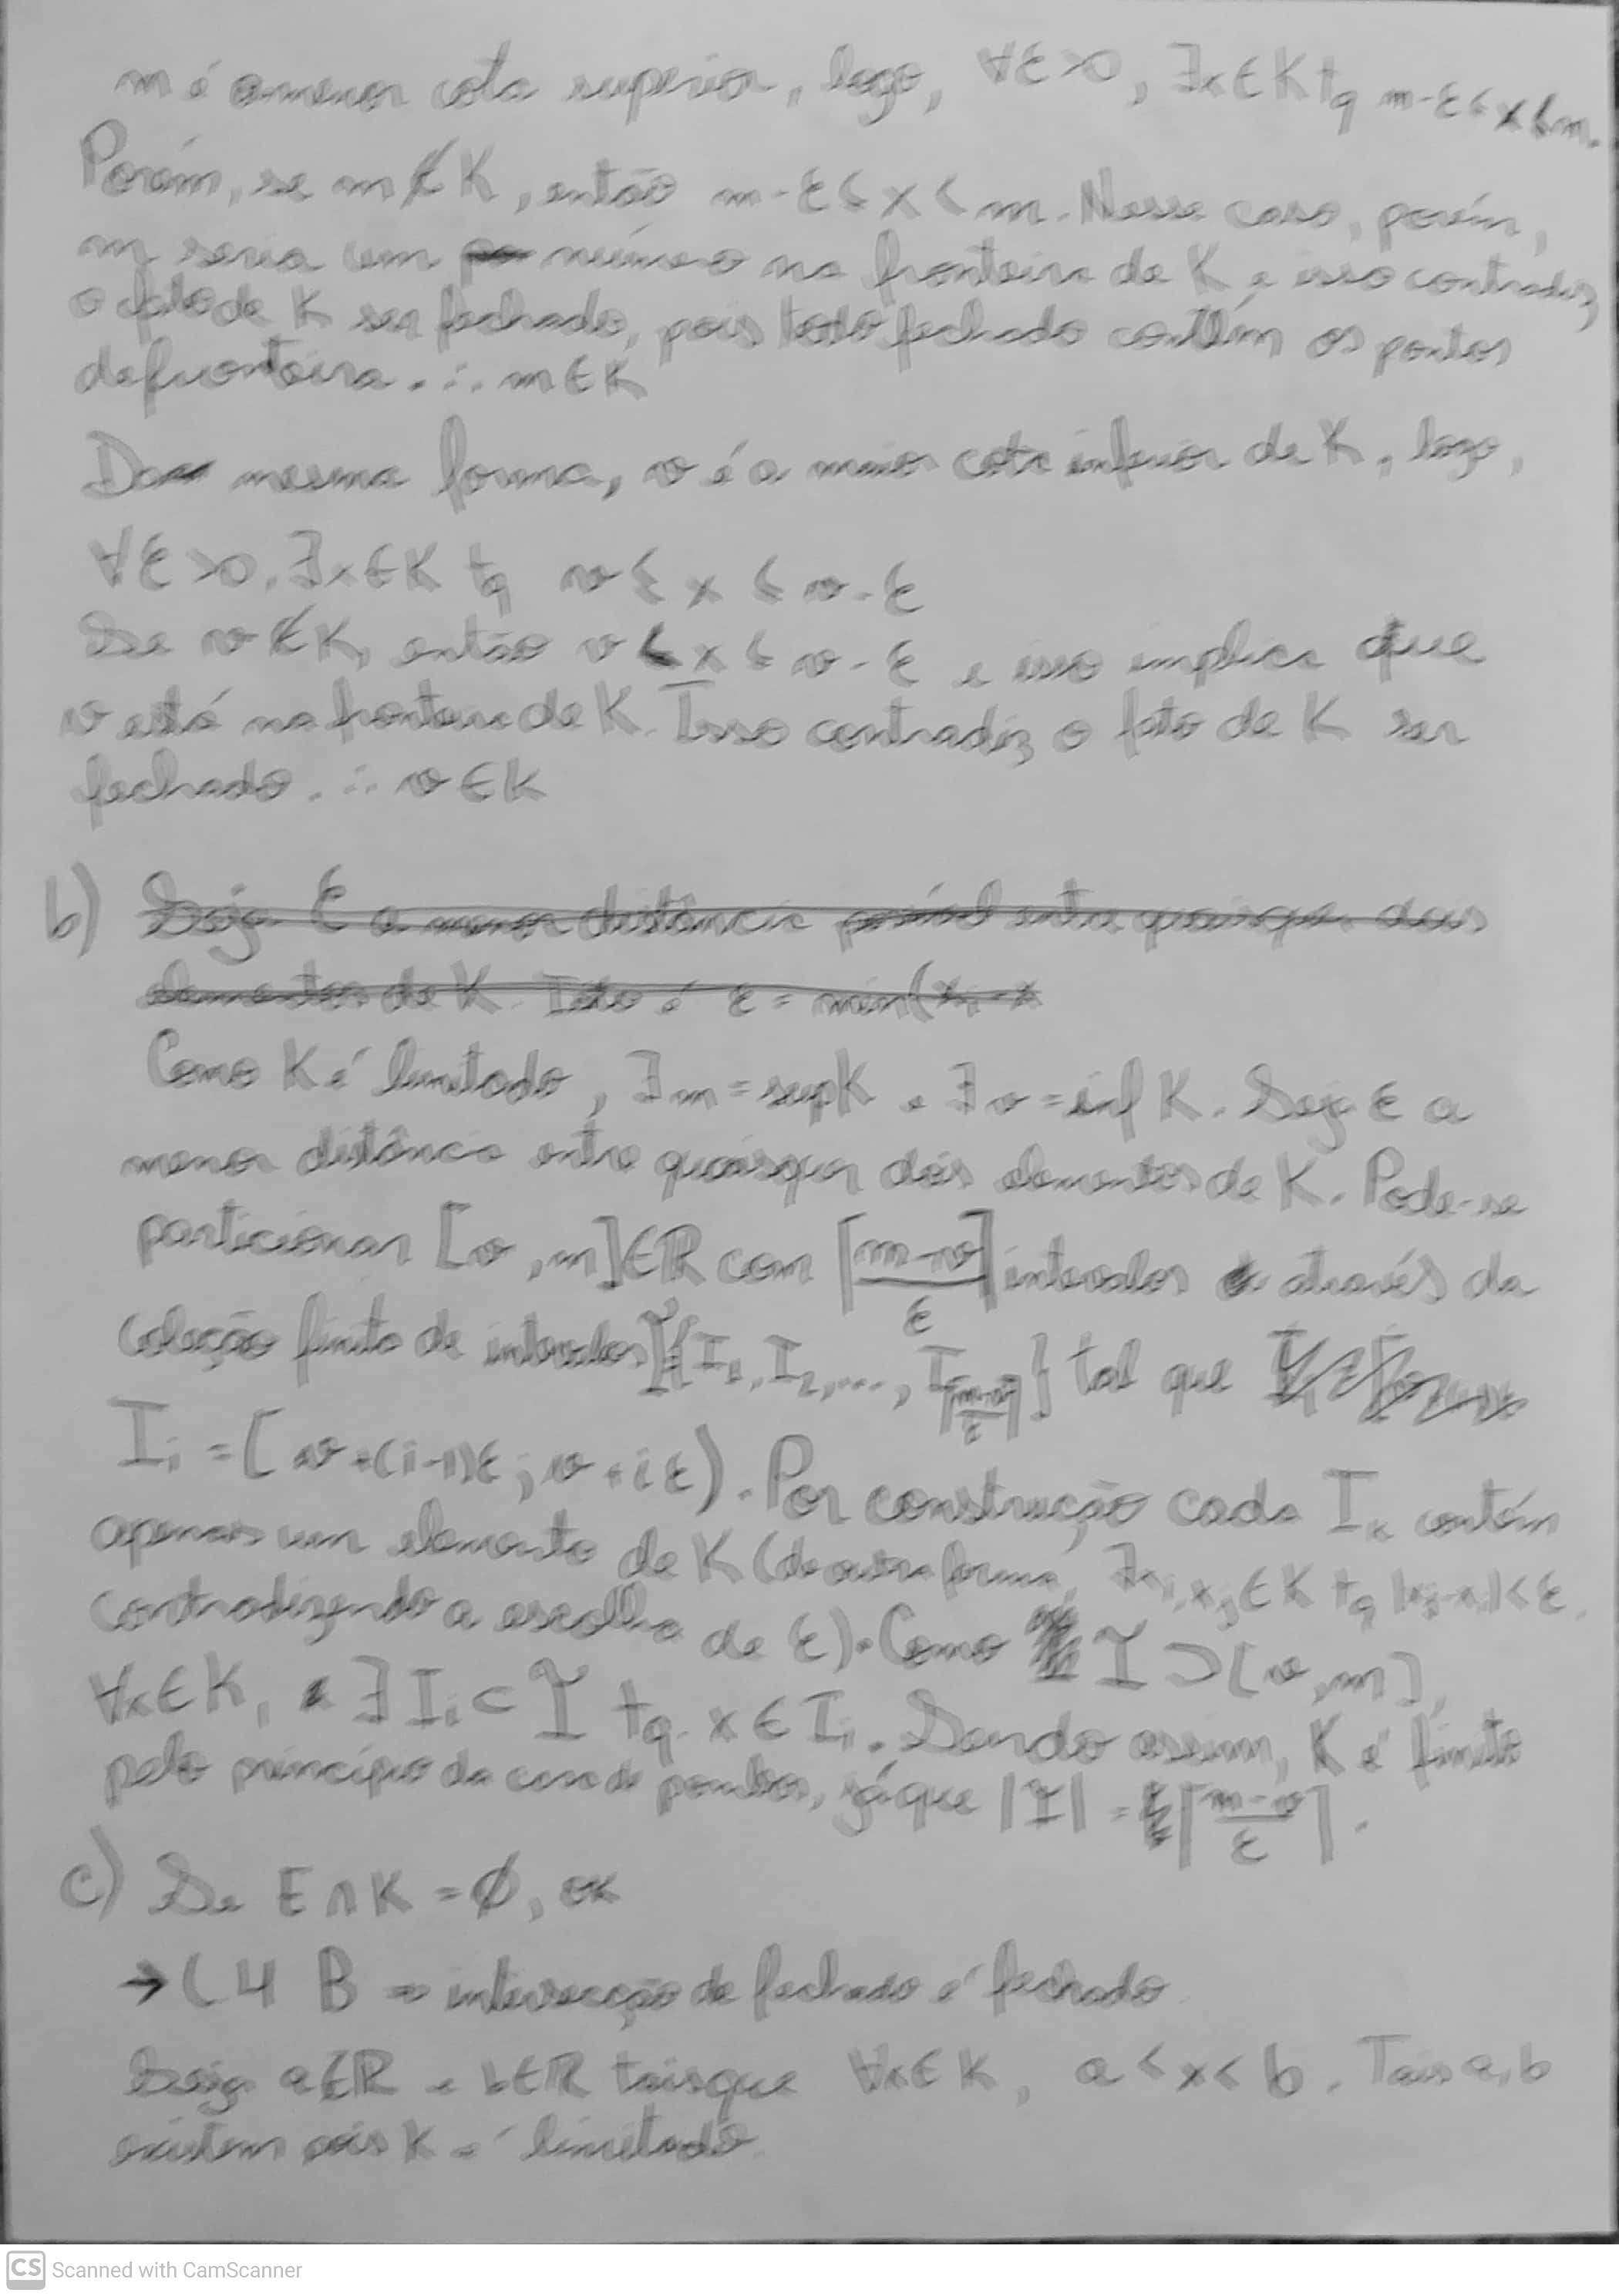 m é a menor cota superior, logo, ∀ε>0, ∃x∈K tq m-ε≤x≤m.
Porém, se m∉K, então m-ε≤x<m. Nesse caso, porém,
m seria um número na fronteira de K e isso contradiz
o fato de K ser fechado, pois todo fechado contém os pontos
de fronteira. ∴ m∈K
Da mesma forma, v é a maior cota inferior de K, logo,
∀ε>0, ∃x∈K tq v≤x≤v-ε
Se v∉K, então v<x≤v-ε e isso implica que
v está na fronteira de K. Isso contradiz o fato de K ser
fechado. ∴ v∈K
b) Seja ε a menor distância possível entre quaisquer dois
elementos de K. Isto é ε = min(x
Como K é limitado, ∃m=supK e ∃v=inf K. Seja ε a
menor distância entre quaisquer dois elementos de K. Pode-se
particionar [v,m]∈ℝ com ⌈(m-v)/ε⌉ intervalos através da
coleção finita de intervalos Ĩ={I₁, I₂, ..., I⌈(m-v)/ε⌉} tal que
Iᵢ = [v+(i-1)ε; v+iε). Por construção cada Iₖ contém
apenas um elemento de K (de outra forma, ∃xᵢ,xⱼ∈K tq |xⱼ-xᵢ|<ε,
contradizendo a escolha de ε). Como Ĩ ⊃ [v,m],
∀x∈K, ∃Iᵢ⊂Ĩ tq x∈Iᵢ. Sendo assim, K é finito
pelo princípio da casa de pombos, já que |Ĩ| = ⌈(m-v)/ε⌉.
c) Se E∩K=∅, ok
→ C4 B ⇒ intersecção de fechado é fechado
Seja a∈ℝ e b∈ℝ tais que ∀x∈K, a<x<b. Tais a,b
existem pois K é limitado.
CS Scanned with CamScanner